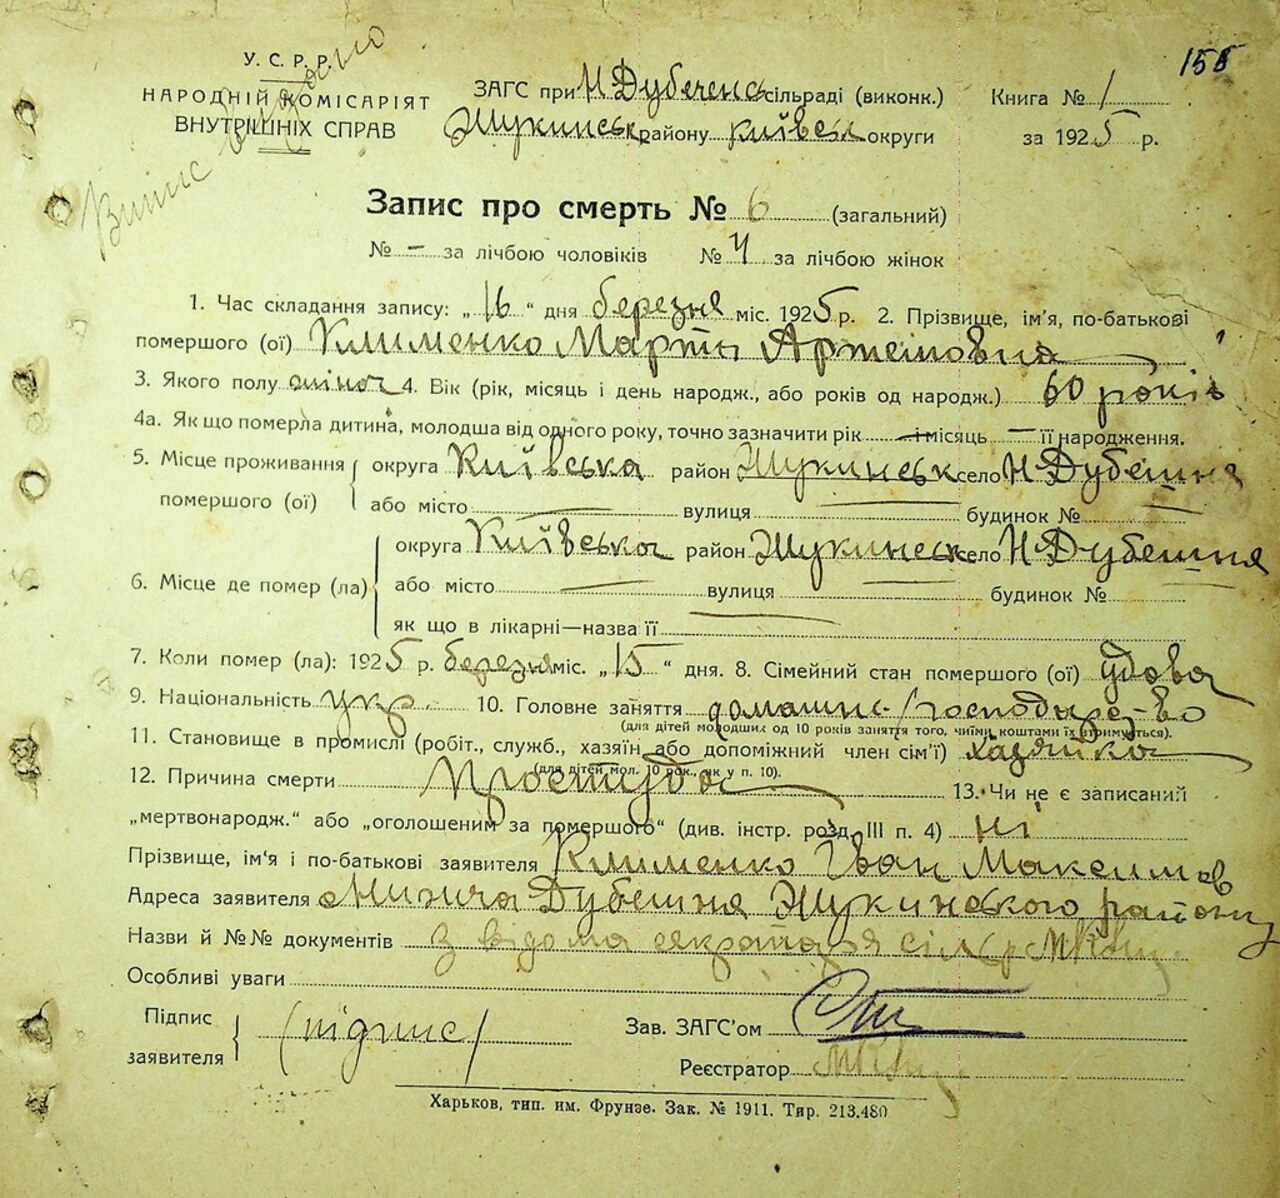 155
У. С. Р. Р.
НАРОДНІЙ КОМІСАРІЯТ
ВНУТРІШНІХ СПРАВ
Випис видано
ЗАГС при Н Дубеченс сільраді (виконк.)
Жукинськ району київськ округи
Книга № 1
за 1925 р.
Запис про смерть № 6 (загальний)
№ – за лічбою чоловіків № 4 за лічбою жінок
1. Час складання запису: „16“ дня березня міс. 1925 р. 2. Прізвище, ім'я, по-батькові
помершого (ої) Клименко Марта Артемовна
3. Якого полу жіноч 4. Вік (рік, місяць і день народж., або років од народж.) 60 років
4а. Як що померла дитина, молодша від одного року, точно зазначити рік — і місяць — її народження.
5. Місце проживання помершого (ої) округа Київська район Жукинськ село Н-Дубешня
або місто — вулиця — будинок № —
6. Місце де помер (ла) округа Київська район Жукинськ село Н-Дубешня
або місто — вулиця — будинок № —
як що в лікарні—назва її —
7. Коли помер (ла): 1925 р. березня міс. „15“ дня. 8. Сімейний стан помершого (ої) удова
9. Національність укр. 10. Головне заняття домашнє господарс-во
(для дітей молодших од 10 років заняття того, чиїми коштами їх утримується).
11. Становище в промислі (робіт., служб., хазяїн або допоміжний член сім'ї) хазяйка
(для дітей мол. 10 рок., як у п. 10).
12. Причина смерти Простуда 13. Чи не є записаний
„мертвонародж.“ або „оголошеним за помершого“ (див. інстр. розд. III п. 4) ні
Прізвище, ім'я і по-батькові заявителя Клименко Іван Максимов
Адреса заявителя Нижча Дубешня Жукинського району
Назви й №№ документів З відома секратаря сіл
Особливі уваги
Підпис заявителя (підпис) Зав. ЗАГС'ом
Реєстратор
Харьков, тип. им. Фрунзе. Зак. № 1911. Тир. 213.480